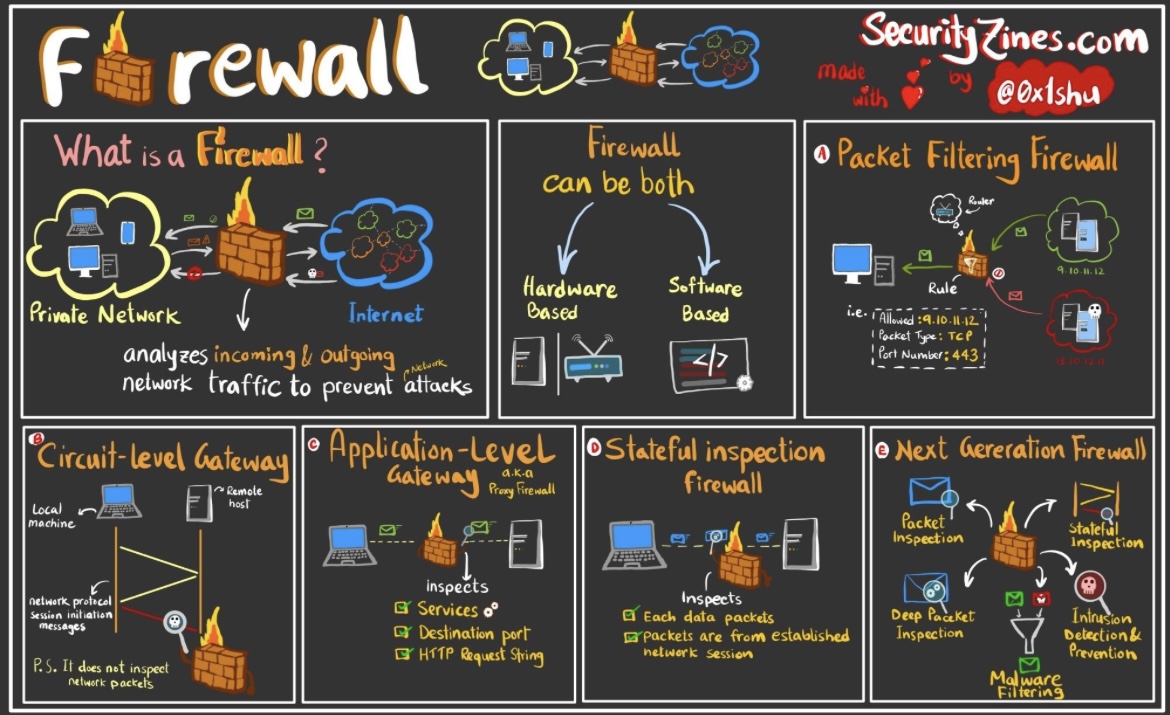 Firewall
SecurityZines.com
made
with
by
@0x1shu
What is a Firewall?
Private Network
Internet
analyzes incoming & outgoing
Network
network traffic to prevent attacks
Firewall
can be both
Hardware
Based
Software
Based
</>
A Packet Filtering Firewall
Router
9.10.11.12
Rule
i.e.
Allowed : 9.10.11.12
Packet Type : TCP
Port Number : 443
B Circuit-level Gateway
Local
machine
Remote
host
network protocol
session initiation
messages
P.S. It does not inspect
network packets
C Application-Level
Gateway
a.k.a
Proxy Firewall
inspects
Services
Destination port
HTTP Request String
D Stateful inspection
firewall
Inspects
Each data packets
packets are from established
network session
E Next Gereration Firewall
Packet
Inspection
Stateful
Inspection
Deep Packet
Inspection
Intrusion
Detection &
Prevention
Malware
Filtering